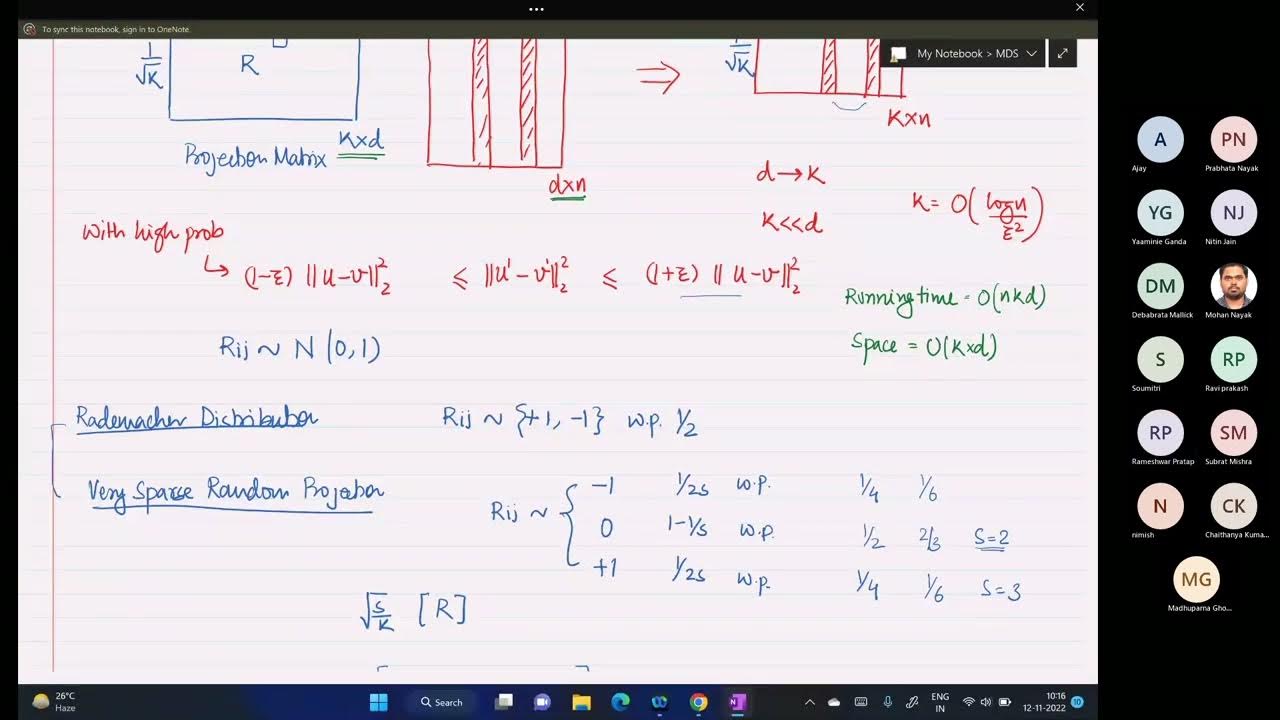 To sync this notebook, sign in to OneNote.
My Notebook > MDS
1/√K
R
Projection Matrix K×d
d×n
⇒
1/√K
K×n
d→K
K<<d
K = O(log n / ε²)
With high prob
↳ (1-ε) ||u-v||₂² ≤ ||u'-v'||₂² ≤ (1+ε) ||u-v||₂²
Running time = O(nkd)
Space = O(K×d)
Rij ~ N(0,1)
Rademacher Distribution Rij ~ {+1, -1} w.p. 1/2
Very Sparse Random Projection
Rij ~ {
-1 1/2s w.p. 1/4 1/6
0 1-1/s w.p. 1/2 2/3 S=2
+1 1/2s w.p. 1/4 1/6 S=3
√(s/K) [R]
A
Ajay
PN
Prabhata Nayak
YG
Yaaminie Ganda
NJ
Nitin Jain
DM
Debabrata Mallick
Mohan Nayak
S
Soumitri
RP
Ravi prakash
RP
Rameshwar Pratap
SM
Subrat Mishra
N
nimish
CK
Chaithanya Kuma...
MG
Madhuparna Gho...
26°C
Haze
Search
ENG
IN
10:16
12-11-2022
10